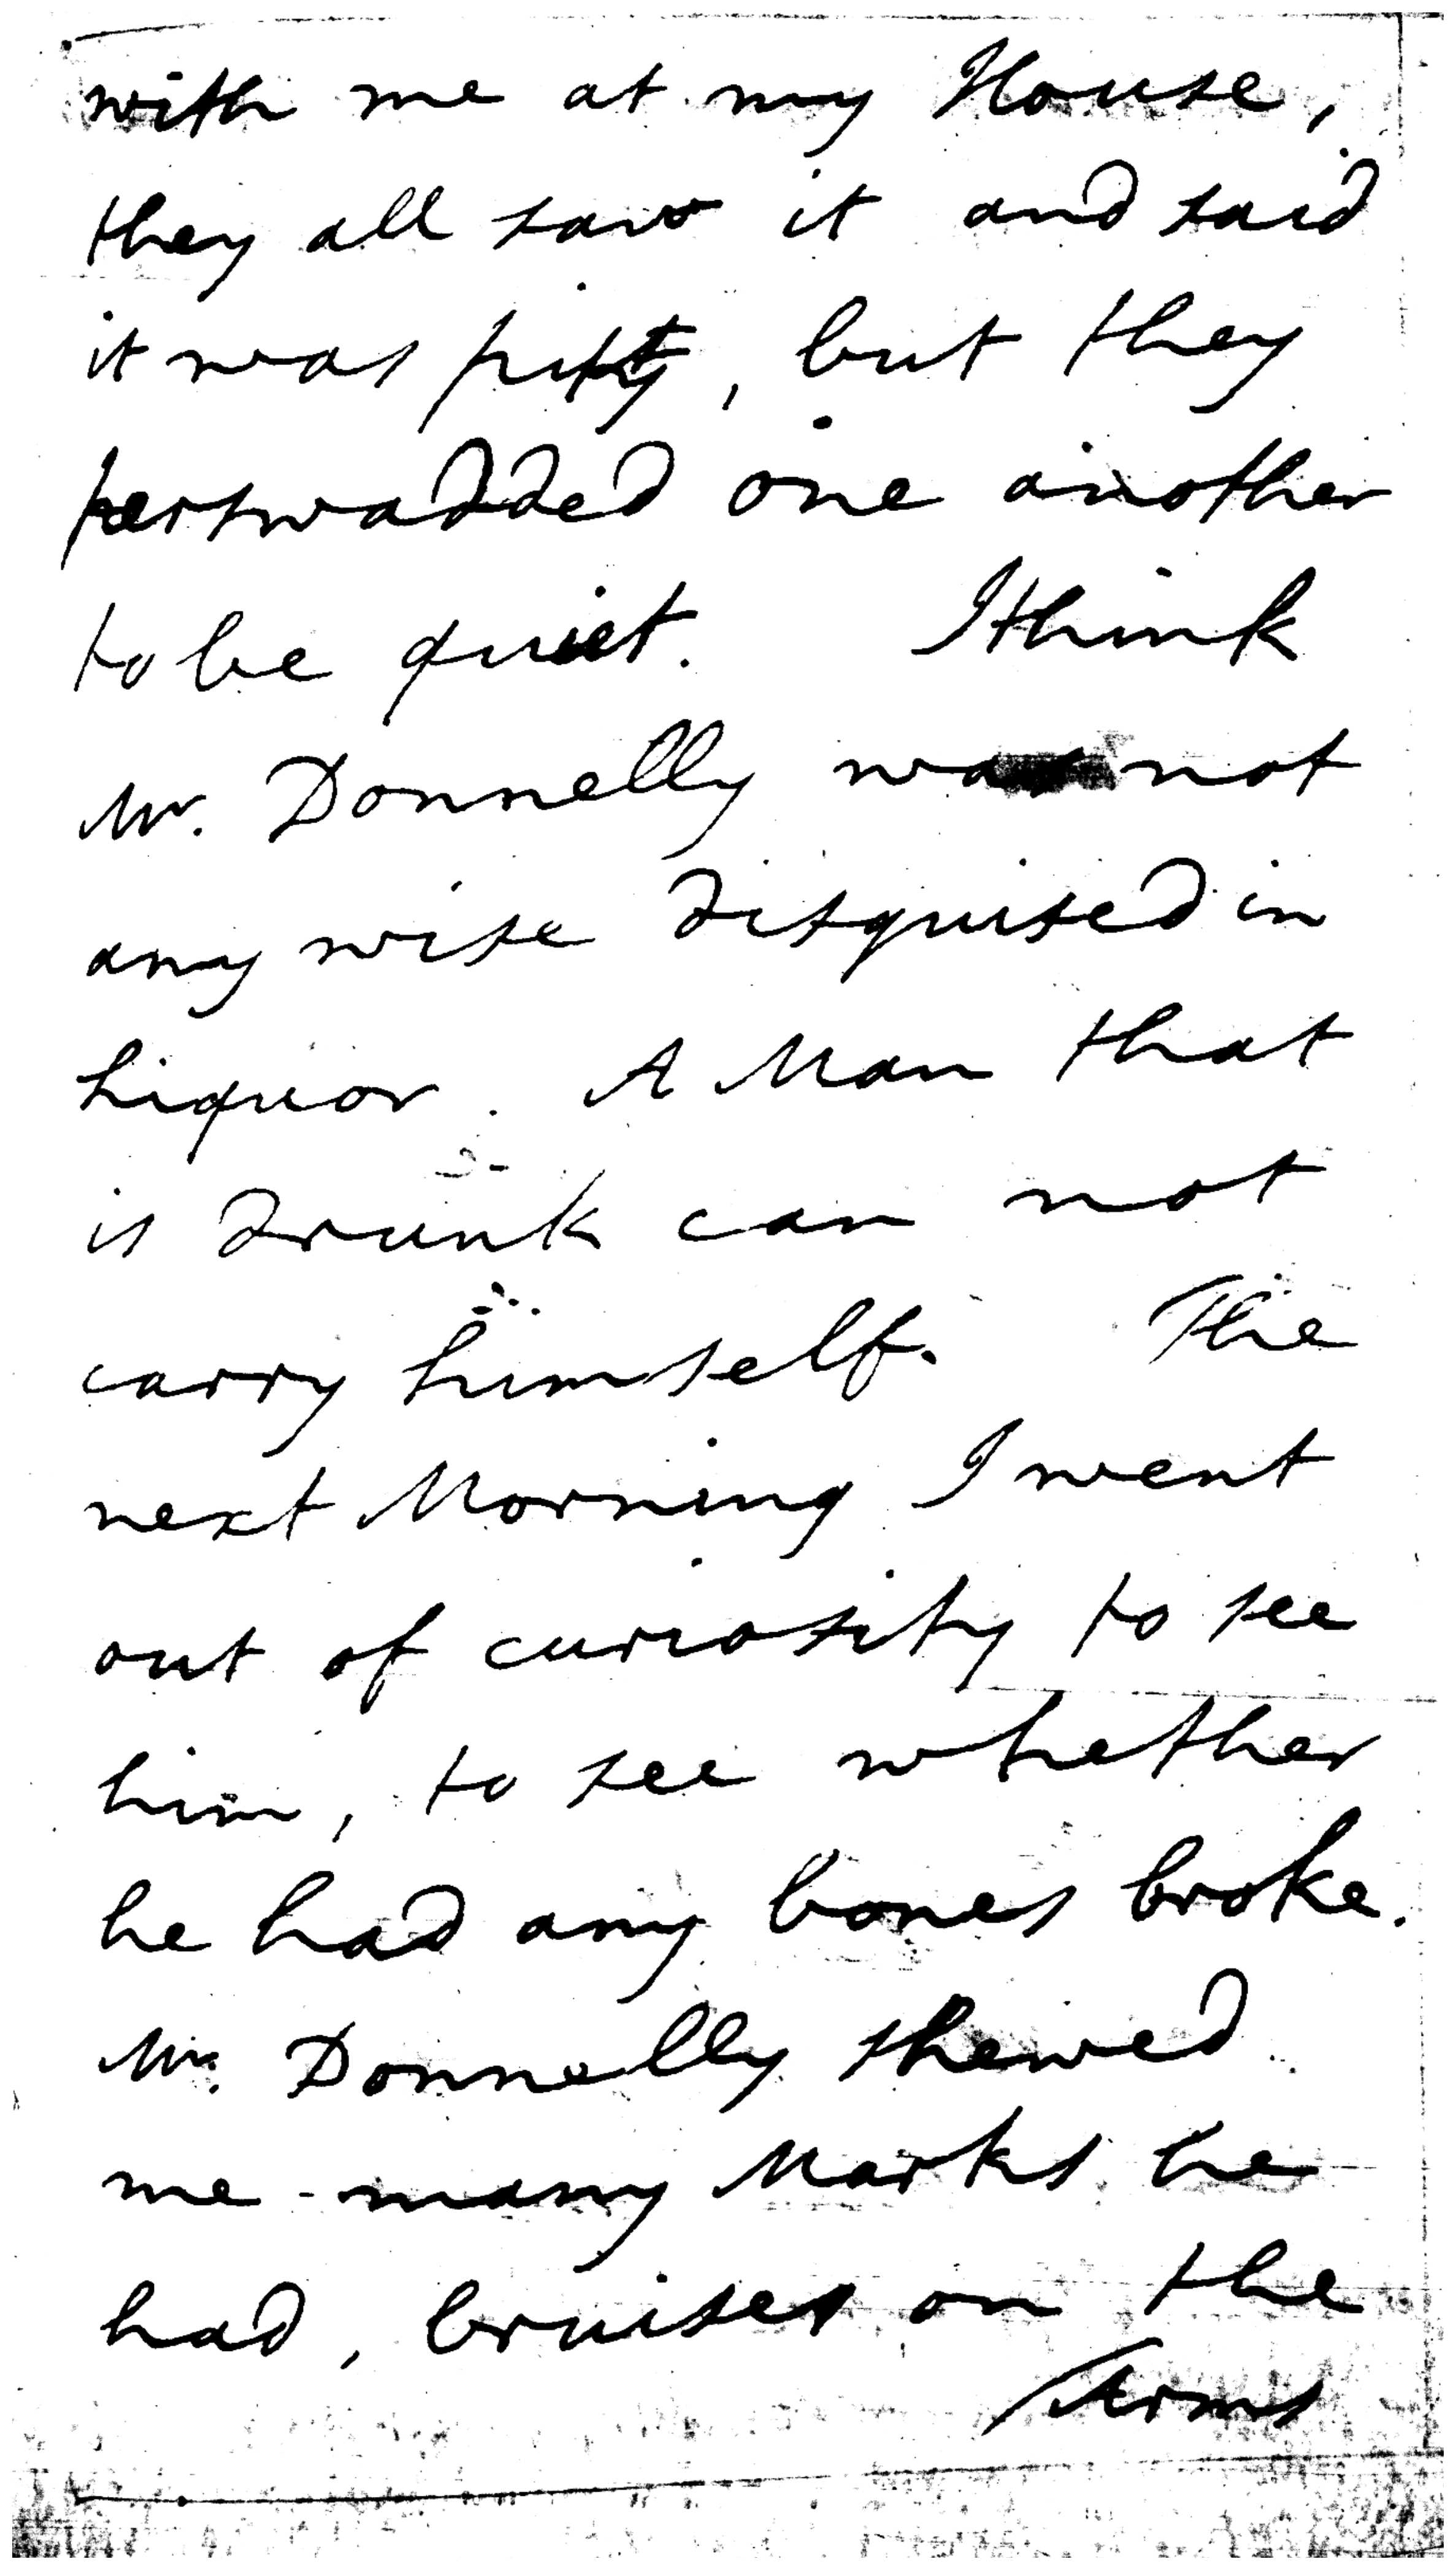 with me at my House,
they all saw it and said
it was pitty, but they
perswadded one another
to be quiet. I think
Mr. Donnelly was not
any wise disguised in
Liquor. A Man that
is drunk can not
carry himself. The
next Morning I went
out of curiosity to see
him, to see whether
he had any bones broke.
Mr. Donnelly shewed
me many Marks he
had, bruises on the
Arms